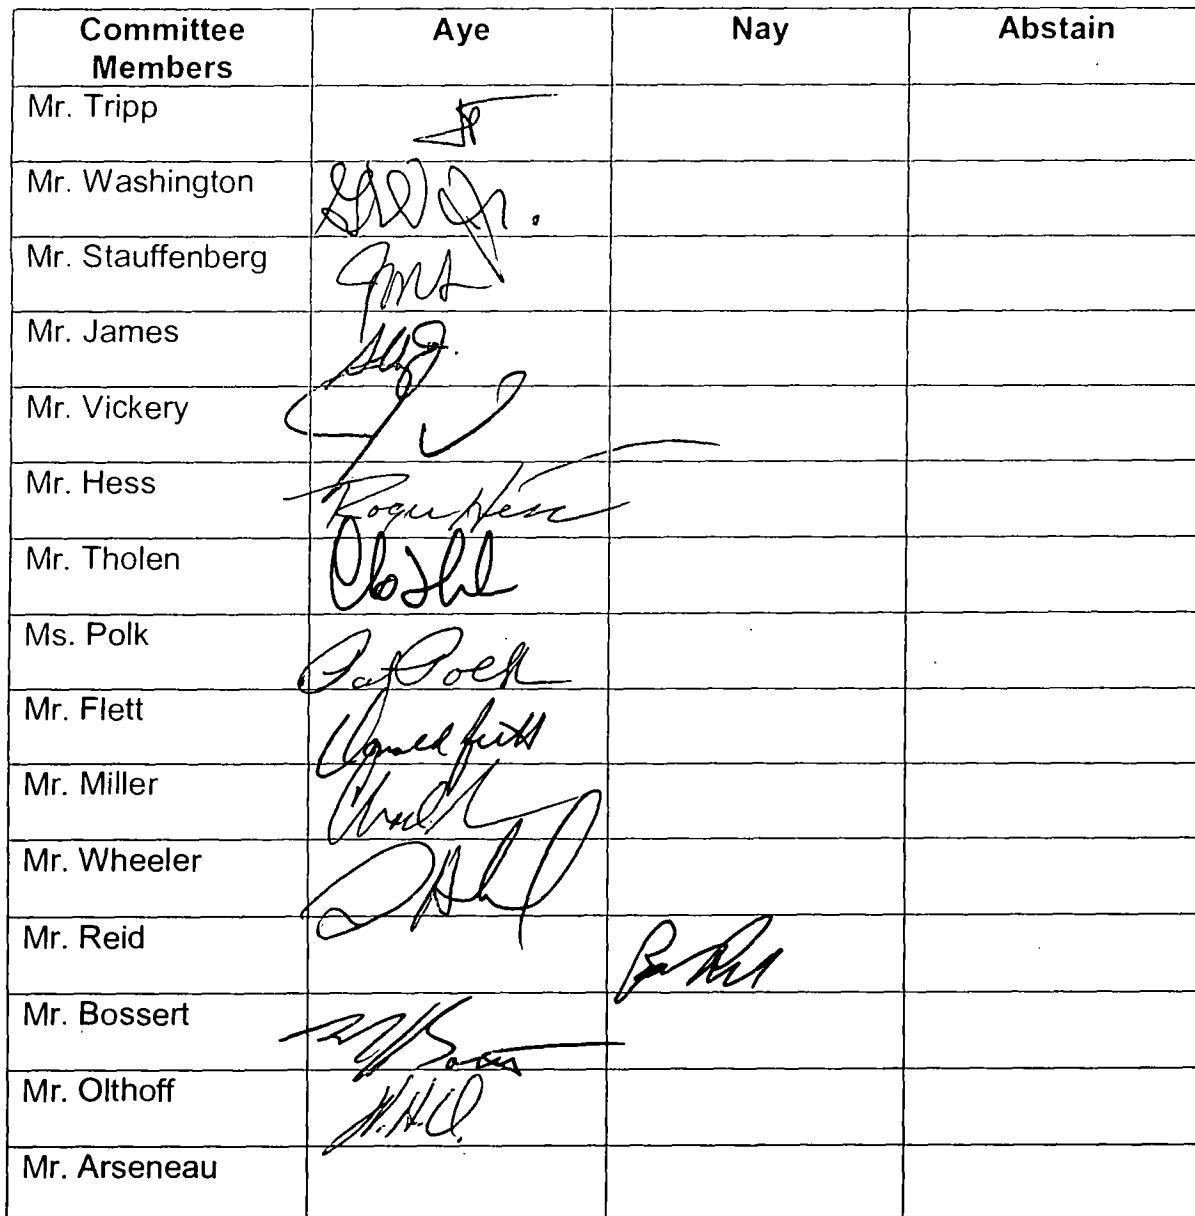 Committee Members Aye Nay Abstain
Mr. Tripp
Mr. Washington GW Jr.
Mr. Stauffenberg JMS
Mr. James
Mr. Vickery
Mr. Hess Roger Hess
Mr. Tholen
Ms. Polk Pat Polk
Mr. Flett Donald Flett
Mr. Miller
Mr. Wheeler
Mr. Reid
Mr. Bossert
Mr. Olthoff W.H.O.
Mr. Arseneau